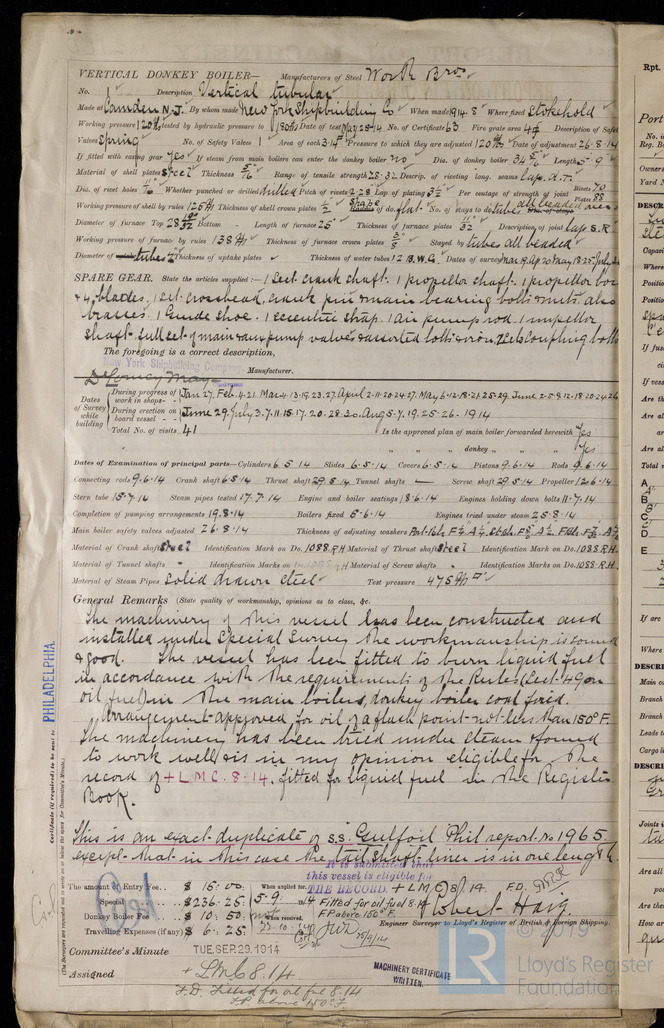 VERTICAL DONKEY BOILER— Manufacturers of Steel Worth Bros
No. 1 Description Vertical tubular
Made at Camden N.J. By whom made New York Shipbuilding Co When made 1914. 8 Where fixed Stokehold
Working pressure 120 lbs tested by hydraulic pressure to 180 lbs Date of test May 28-14 No. of Certificate 63 Fire grate area 4 Description of Safety
Valves Spring No. of Safety Valves 1 Area of each 3.14 Pressure to which they are adjusted 120 lbs Date of adjustment 26-8-14
If fitted with easing gear Yes If steam from main boilers can enter the donkey boiler no Dia. of donkey boiler 34 Length 5'-9"
Material of shell plates Steel Thickness 5/16 Range of tensile strength 28-32 Descrip. of riveting long. seams Lap. D.T.
Dia. of rivet holes 11/16 Whether punched or drilled drilled Pitch of rivets 2.28 Lap of plating 3 1/2 Per centage of strength of joint Rivets 70 Plates
Working pressure of shell by rules 125 lbs Thickness of shell crown plates 1/2 Radius of do. flat No. of stays to do. tubes all beaded over
Diameter of furnace Top 28 Bottom - Length of furnace 25" Thickness of furnace plates 11/32 Description of joint Lap S.R.
Working pressure of furnace by rules 138 lbs Thickness of furnace crown plates 3/8 Stayed by tubes all beaded
Diameter of tubes 2" Thickness of uptake plates Thickness of water tubes 12 B.W.G. Dates of survey Mar 19. Ap 20 May 13-25 July
SPARE GEAR. State the articles supplied:— 1 Set crank shaft. 1 propeller shaft. 1 propeller boss
& 4 blades. 1 set crosshead, crank pin & main bearing bolts & nuts, also
brasses. 1 Guide shoe. 1 eccentric strap. 1 air pump rod. 1 impeller
shaft. full set of main & aux pump valves & assorted bolts & iron, 2 sets coupling bolts
The foregoing is a correct description,
New York Shipbuilding Company
Manufacturer.
Dates of Survey while building
During progress of work in shops - - Jan 27, Feb. 4-21 Mar. 4-13-19-23-27. April 2-11-20-24-27. May 6-12-18-21-25-29. June 2-5-9-12-18-20-24-26
During erection on board vessel - - June 29, July 3-7-11-15-17-20-28-30. Aug 5-7-19-25-26-1914
Total No. of visits 41 Is the approved plan of main boiler forwarded herewith Yes
" " " donkey " " " Yes
Dates of Examination of principal parts—Cylinders 6-5-14 Slides 6-5-14 Covers 6-5-14 Pistons 9-6-14 Rods 9-6-14
Connecting rods 9-6-14 Crank shaft 6-5-14 Thrust shaft 29-5-14 Tunnel shafts — Screw shaft 29-5-14 Propeller 12-6-14
Stern tube 15-7-14 Steam pipes tested 17-7-14 Engine and boiler seatings 18-6-14 Engines holding down bolts 11-7-14
Completion of pumping arrangements 19-8-14 Boilers fixed 5-6-14 Engines tried under steam 25-8-14
Main boiler safety valves adjusted 26-8-14 Thickness of adjusting washers
Material of Crank shaft Steel Identification Mark on Do. 1088.R.H. Material of Thrust shaft Steel Identification Mark on Do. 1088.R.H.
Material of Tunnel shafts - Identification Marks on Do. Material of Screw shafts " Identification Marks on Do. 1088.R.H.
Material of Steam Pipes Solid drawn steel Test pressure 475 lbs
General Remarks (State quality of workmanship, opinions as to class, &c.
The machinery of this vessel has been constructed and
installed under Special Survey the workmanship is sound
& good. The vessel has been fitted to burn liquid fuel
in accordance with the requirements of the Rules (Sect. 49 on
oil fuel) in the main boilers, donkey boiler coal fired.
Arrangement approved for oil of a flash point not less than 150° F.
The machinery has been tried under steam & found
to work well & is in my opinion eligible for the
record of + L.M.C. 8.14. fitted for liquid fuel in the Register
Book.
This is an exact duplicate of S.S. Gulfoil Phil report No 1965
except that in this case the tail shaft liner is in one length
It is submitted that
this vessel is eligible for
THE RECORD. + LMC 8.14. F.D.
Fitted for oil fuel 8.14
F.P. above 150° F.
The amount of Entry Fee.. $ 15.00 When applied for,
Special $ 236.25 5-9-14
Donkey Boiler Fee $ 10.50 When received,
Travelling Expenses (if any) $ 6.25
Robert Haig
Engineer Surveyor to Lloyd's Register of British & Foreign Shipping.
Committee's Minute TUE. SEP. 29. 1914
Assigned + LMC 8.14
F.D. Fitted for oil fuel 8.14
F.P. above 150° F.
MACHINERY CERTIFICATE
WRITTEN.
Certificate (if required) to be sent to PHILADELPHIA.
(The Surveyors are requested not to write on or below the space for Committee's Minute.)
© 2019
LR
Lloyd's Register
Foundation
Rpt.
Port
No. in
Reg. B
Owners
Yard N
DESCR
Capaci
Where
Positio
Positio
Positio
If fuse
If vess
Are the
Are all
Are the
Total n
A
B
C
D
E
If are
Where
DESCRI
Main co
Branch
Branch
Leads t
Cargo l
DESCRI
Joints i
Are all
Are the
How are